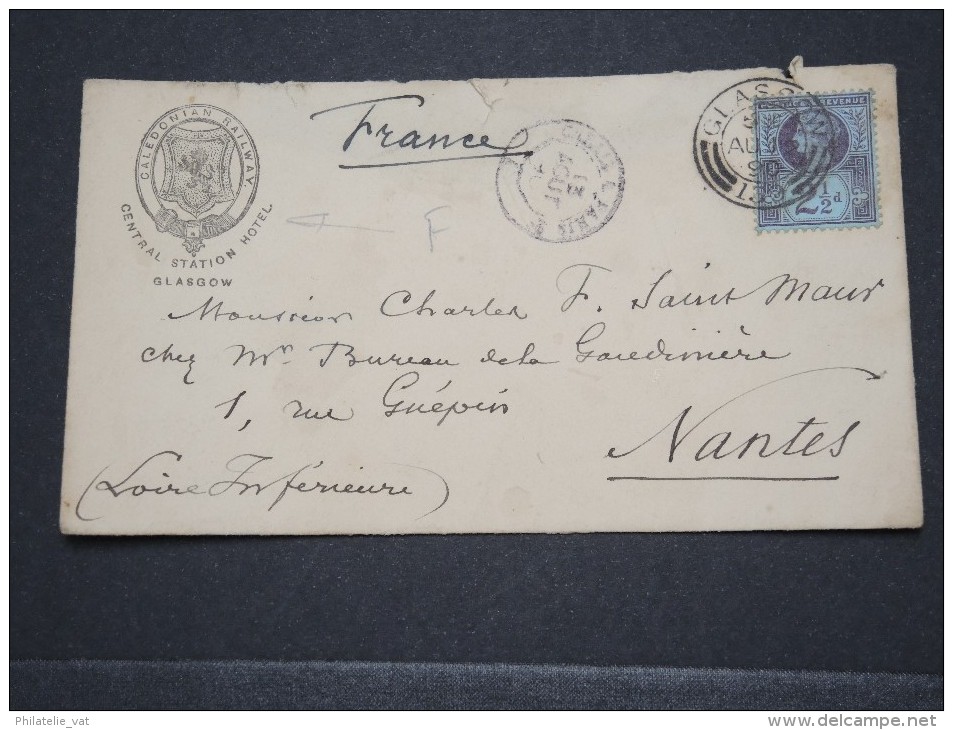 CALEDONIAN RAILWAY.
CENTRAL STATION HOTEL.
GLASGOW
France
F
GLASGOW
AU
159
POSTAGE REVENUE
2½d
Monsieur Charles F. Saint Maur
chez Mr Bureau de la
1, rue Guépin
Nantes
(Loire Inférieure)
Philatelie_vat
www.delcampe.net